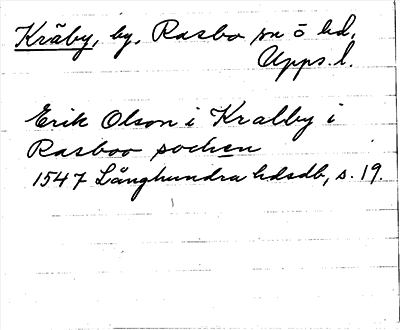 Kråby, by, Rasbo sn o hd.
Upps. l.
Erik Olson i Kralby i
Rasboo sochen
1547 Långhundra hdsdb, s. 19.